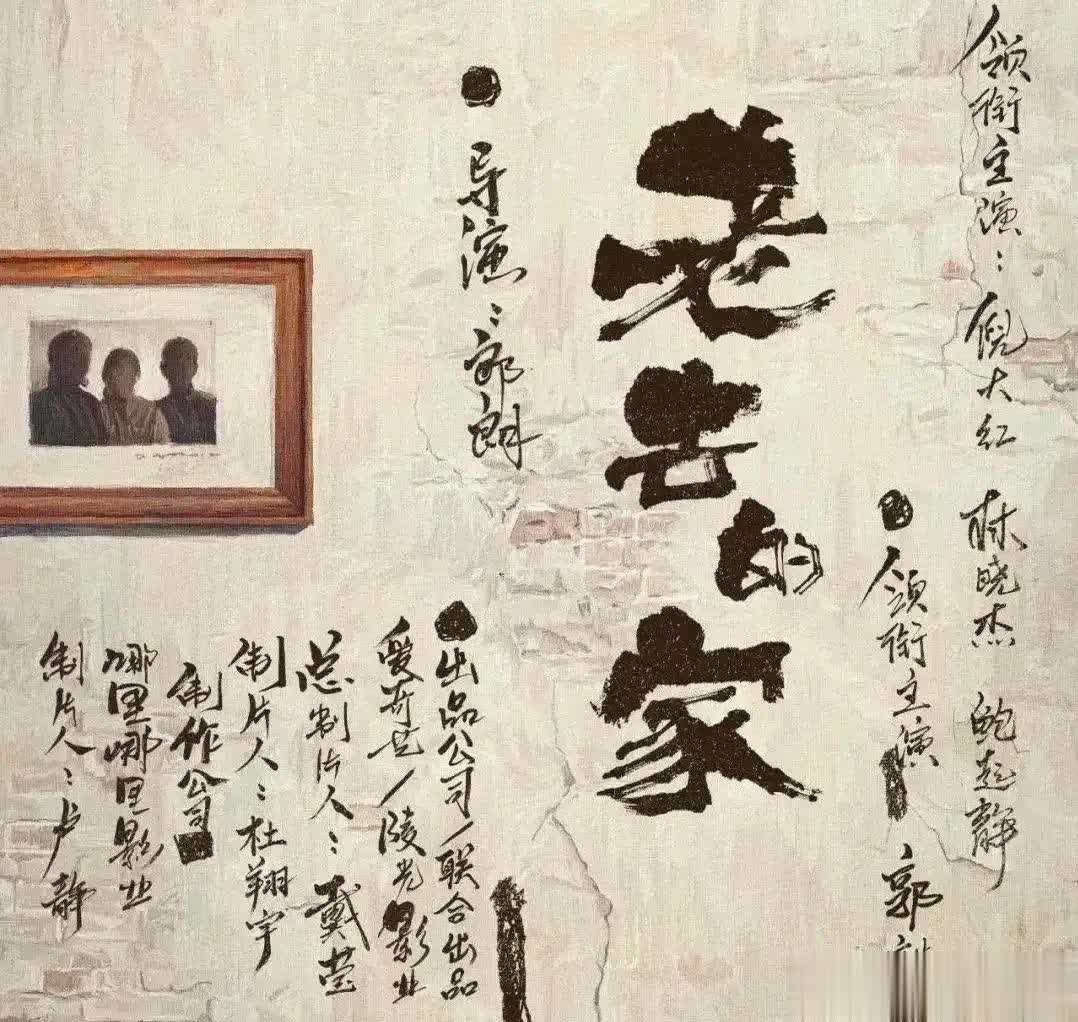 领衔主演：倪大红 林晓杰 鲍起静
领衔主演 郭
老去的家
导演：郭朗
出品公司/联合出品
爱奇艺/陵光影业
总制片人：戴莹
制片人：杜翔宇
制作公司
哪里哪里影业
制片人：卢静